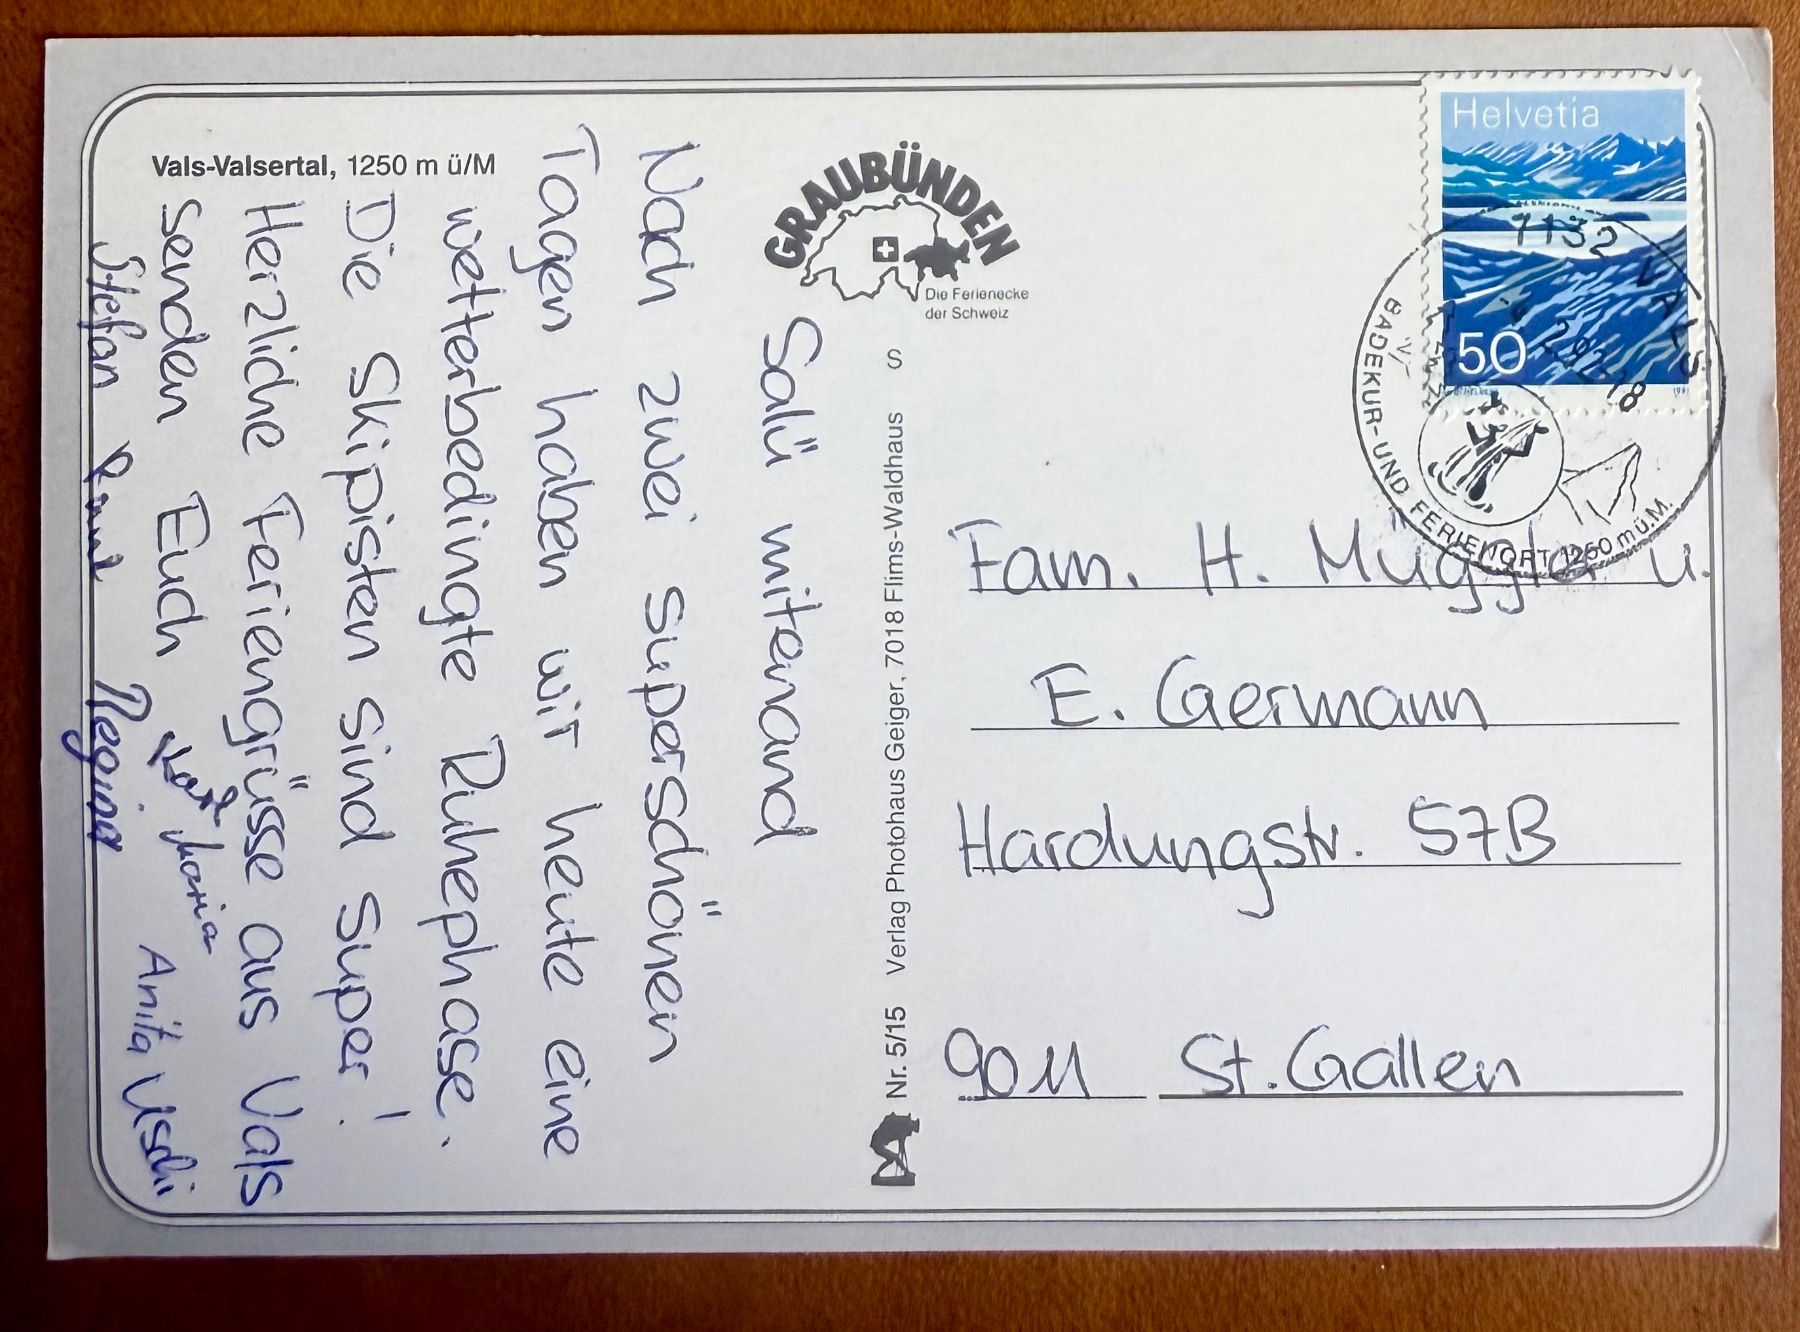 Vals-Valsertal, 1250 m ü/M
GRAUBÜNDEN
Die Ferienecke
der Schweiz
Salü mitenand
Nach zwei superschönen
Tagen haben wir heute eine
wetterbedingte Ruhephase.
Die Skipisten sind super!
Herzliche Feriengrüsse aus Vals
senden Euch Maria Anita Uschi
Stefan Regina
S Verlag Photohaus Geiger, 7018 Flims-Waldhaus Nr. 5/15
Helvetia
50
1991
7132 VALS
2.92-18
BADEKUR- UND FERIENORT 1250 m ü.M.
Fam. H. Müggler u.
E. Germann
Hardungstr. 57B
9011 St. Gallen